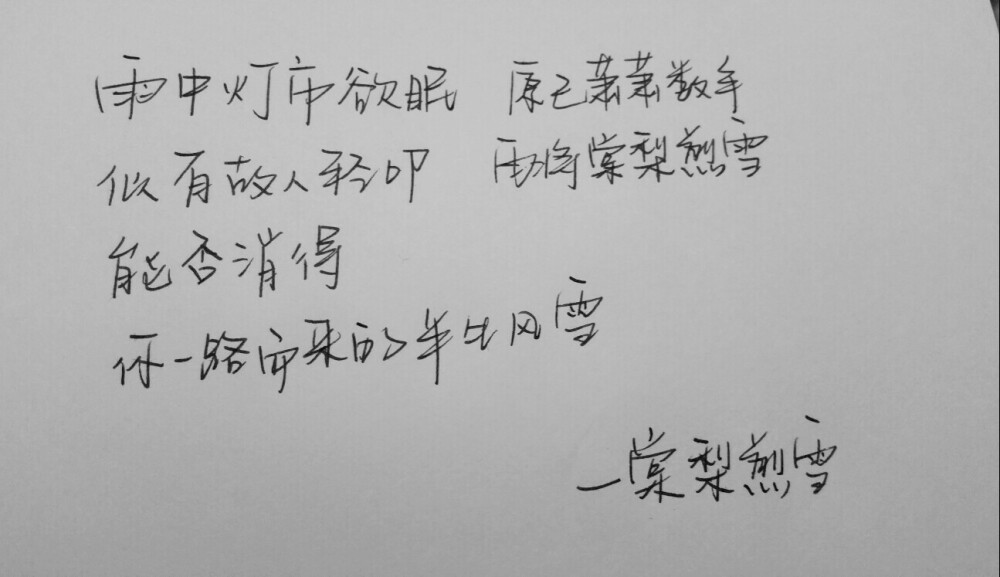 雨中灯市欲眠 原已萧萧数年
似有故人轻叩 再将棠梨煎雪
能否消得
你一路而来的半生风雪
—棠梨煎雪